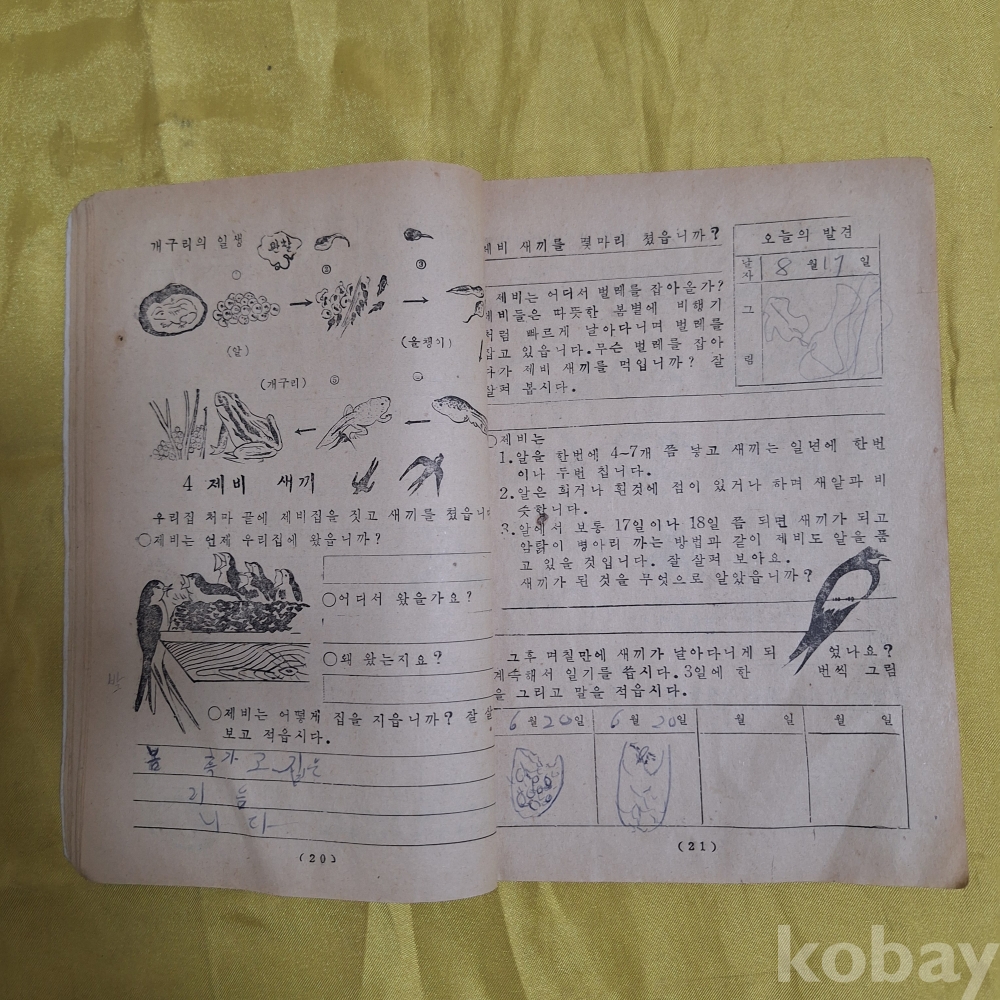 개구리의 일생
관찰
①
②
③
(알)
(올챙이)
(개구리)
⑤
4 제비 새끼
우리집 처마 끝에 제비집을 짓고 새끼를 쳤읍니다
○제비는 언제 우리집에 왔읍니까?
○어디서 왔을가요?
○왜 왔는지요?
○제비는 어떻게 집을 지읍니까? 잘 살
보고 적읍시다.
봄 흑가고 집은
리 늠
니 다
(20)
제비 새끼를 몇마리 쳤읍니까?
제비는 어디서 벌레를 잡아올가?
제비들은 따뜻한 봄볕에 비행기
처럼 빠르게 날아다니며 벌레를
잡고 있읍니다.무슨 벌레를 잡아
다가 제비 새끼를 먹입니까? 잘
살펴 봅시다.
오늘의 발견
날자 8 월 17 일
그
림
○제비는
1.알을 한번에 4~7개 쯤 낳고 새끼는 일년에 한번
이나 두번 칩니다.
2.알은 희거나 흰것에 점이 있거나 하며 새알과 비
슷합니다.
3.알에서 보통 17일이나 18일 쯤 되면 새끼가 되고
암탉이 병아리 까는 방법과 같이 제비도 알을 품
고 있을 것입니다. 잘 살펴 보아요.
새끼가 된 것을 무엇으로 알았읍니까?
그후 며칠만에 새끼가 날아다니게 되었나요?
계속해서 일기를 씁시다.3일에 한번씩 그림
을 그리고 말을 적읍시다.
6 월 20 일 6 월 20 일 월 일 월 일
(21)
kobay